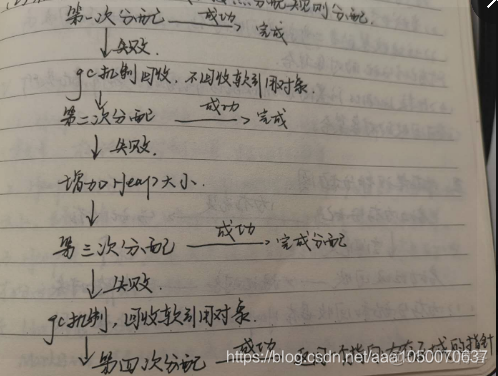 第一次分配 成功 完成
失败.
gc机制回收，不回收软引用对象.
第二次分配 成功 完成
失败.
增加Heap大小.
第三次分配 成功 完成分配
失败.
gc机制，回收软引用对象.
第四次分配 成功 的指针
https://blog.csdn.net/aaa1050070637